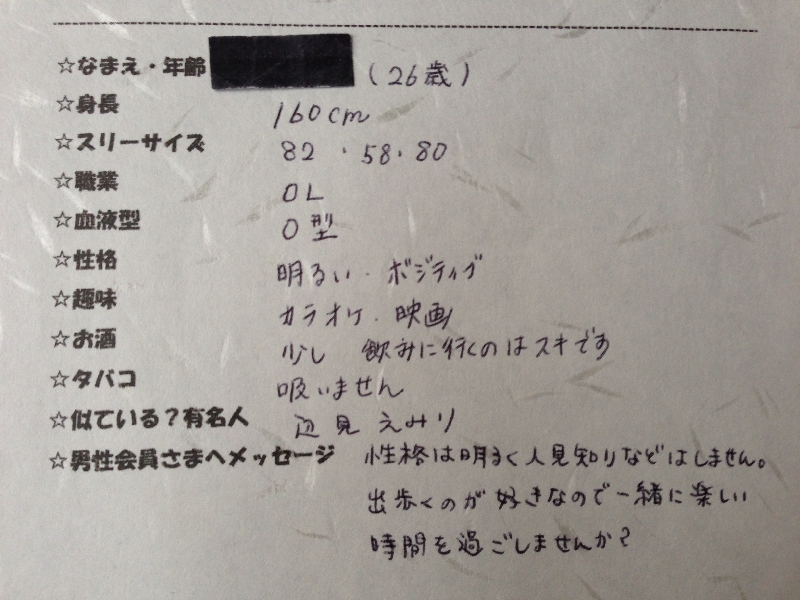 ☆なまえ・年齢 (26歳)
☆身長 160cm
☆スリーサイズ 82・58・80
☆職業 OL
☆血液型 O型
☆性格 明るい・ポジティブ
☆趣味 カラオケ・映画
☆お酒 少し 飲みに行くのはスキです
☆タバコ 吸いません
☆似ている?有名人 辺見えみり
☆男性会員さまへメッセージ 性格は明るく人見知りなどはしません。
出歩くのが好きなので一緒に楽しい
時間を過ごしませんか?